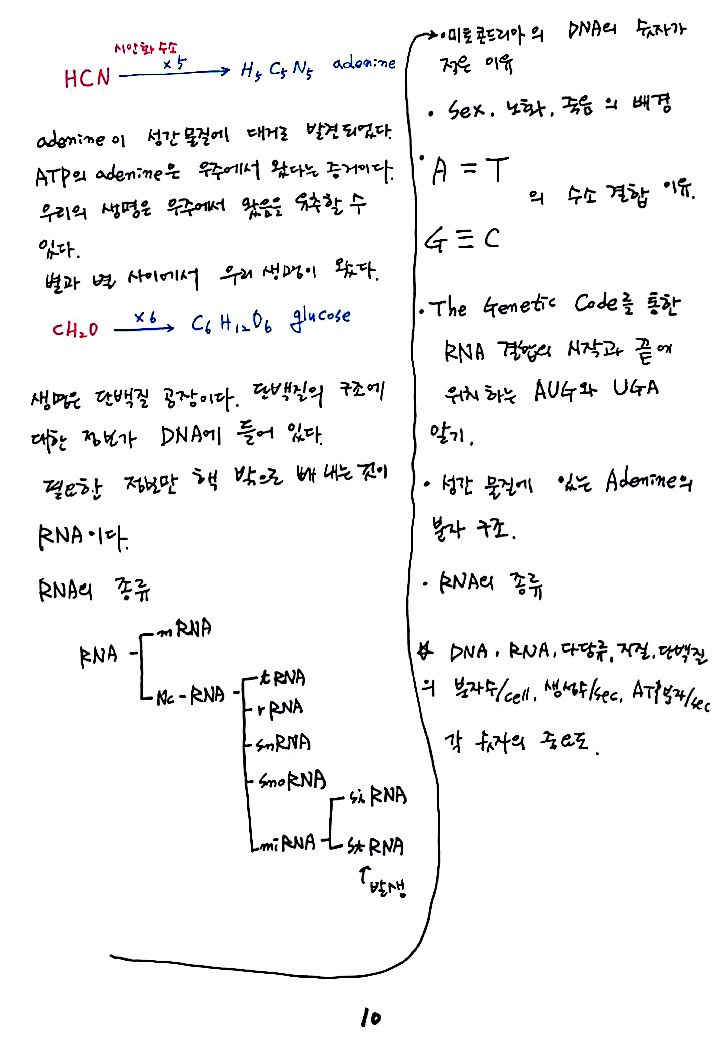 시안화 수소
×5
HCN → H₅C₅N₅ adenine
adenine이 성간물질에 대거로 발견되었다.
ATP의 adenine은 우주에서 왔다는 증거이다.
우리의 생명은 우주에서 왔음을 유추할 수
있다.
별과 별 사이에서 우리 생명이 왔다.
×6
CH₂O → C₆H₁₂O₆ glucose
생명은 단백질 공장이다. 단백질의 구조에
대한 정보가 DNA에 들어 있다.
필요한 정보만 핵 밖으로 빼내는 것이
RNA이다.
RNA의 종류
RNA
mRNA
Nc-RNA
tRNA
rRNA
snRNA
snoRNA
miRNA
siRNA
stRNA
↑발생
→•미토콘드리아의 DNA의 숫자가
적은 이유
• Sex, 노화, 죽음의 배경
• A = T
의 수소결합 이유.
G ≡ C
• The Genetic Code를 통한
RNA 결합의 시작과 끝에
위치하는 AUG와 UGA
알기.
• 성간 물질에 있는 Adenine의
분자 구조.
• RNA의 종류
DNA, RNA, 다당류, 지질, 단백질
의 분자수/cell, 생성수/sec, ATP분자/sec
각 숫자의 중요도.
10